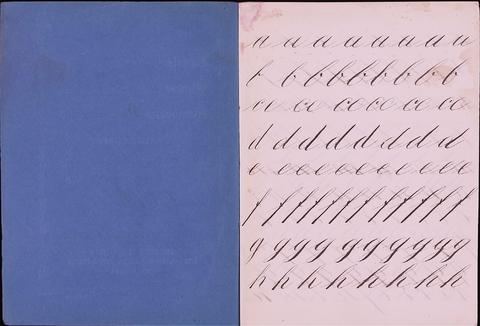 a a a a a a a a a
b b b b b b b b b
cc cc cc cc cc cc
d d d d d d d d
e e e e e e e e e e e e
f f f f f f f f f f f f
g g g g g g g g g g
h h h h h h h h